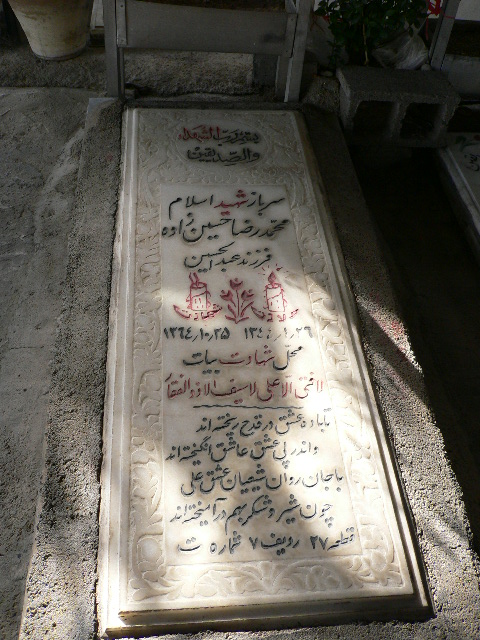 بسم رب الشهداء
والصدیقین
سرباز شهید اسلام
محمد رضا حسین زاده
فرزند عبدالحسین
ولادت شهادت
۱۳۶۴٫۱۰٫۲۵
محل شهادت بیات
لافتی الا علی لا سیف الا ذوالفقار
تا باده عشق در قدح ریخته‌اند
واندر پی عشق عاشق انگیخته‌اند
با جان روان شیعیان عشق علی
چون شیر و شکر بهم در آمیخته‌اند
قطعه ۲۷ ردیف ۷ شماره ت